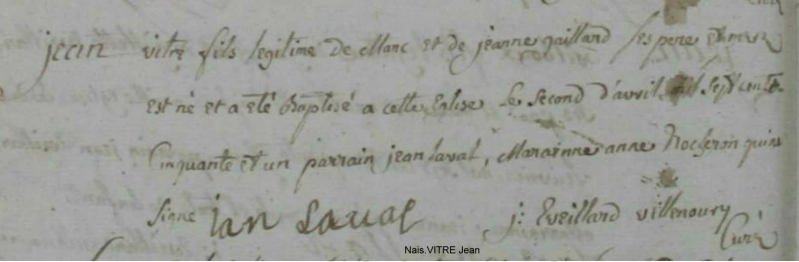 jean vitré fils legitime de Marc et de jeanne gaillard ses pere et mere
est né et a eté Baptisé a cette Eglise le second d'avril mil sept cents
Cinquante et un parrain jean laval, Marainne anne Rocheron qui ne
signe jan Laval j: Eveillard villenoury
Curé
Nais.VITRE Jean